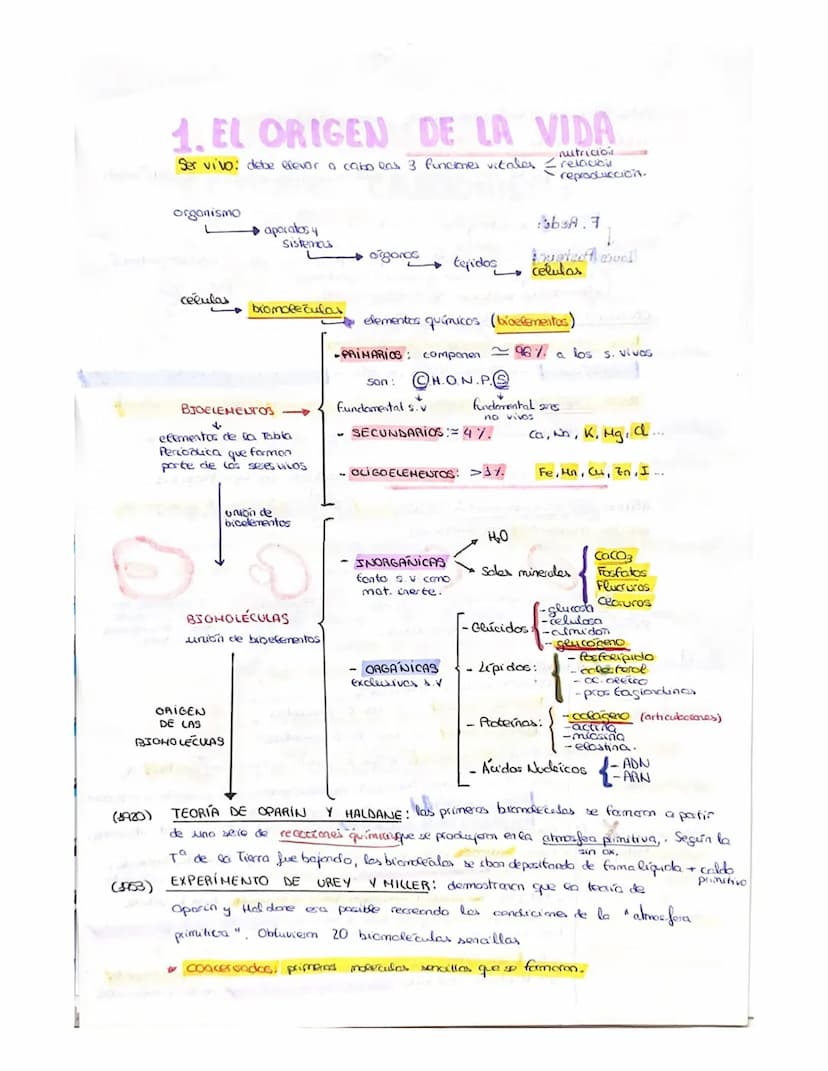 1. EL ORIGEN DE LA VIDA
Ser vivo: debe llevar a cabo las 3 funciones vitales
nutrición
relación
reproducción.
organismo
aparatos y
sistemas
órganos
tejidos
células
células
biomoléculas
elementos químicos (bioelementos)
BIOELEMENTOS
elementos de la Tabla
Periódica que forman
parte de los seres vivos
- PRIMARIOS: componen ≃ 96% a los s. vivos
son: C.H.O.N.P.S
fundamental s.v
fundamental seres
no vivos
- SECUNDARIOS: ≃ 4%. Ca, Na, K, Mg, Cl ...
- OLIGOELEMENTOS: >1%. Fe, Mn, Cu, Zn, I ...
unión de
bioelementos
BIOMOLÉCULAS
unión de bioelementos
- INORGÁNICAS
tanto s.v como
mat. inerte.
H₂O
Sales minerales
CaCO3
Fosfatos
Fluoruros
Cloruros
- ORGÁNICAS
exclusivas s.v
- Glúcidos:
- glucosa
- celulosa
- almidón
- glucógeno
- Lípidos:
- fosfolípido
- colesterol
- ac. oleico
- prostaglandinas
- Proteínas:
- colágeno (articulaciones)
- actina
- miosina
- elastina.
- Ácidos Nucleicos
- ADN
- ARN
ORIGEN
DE LAS
BIOMOLÉCULAS
(1920) TEORÍA DE OPARIN Y HALDANE: las primeras biomoléculas se formaron a partir
de una serie de reacciones químicas que se produjeron en la atmosfera primitiva. Según la
sin ox.
Tª de la Tierra fue bajando, las biomoléculas se iban depositando de forma líquida → caldo
primitivo
(1953) EXPERIMENTO DE UREY Y MILLER: demostraron que la teoría de
Oparin y Haldane era posible recreando las condiciones de la "atmosfera
primitiva". Obtuvieron 20 biomoléculas sencillas
coacervados: primeras moléculas sencillas que se formaron.